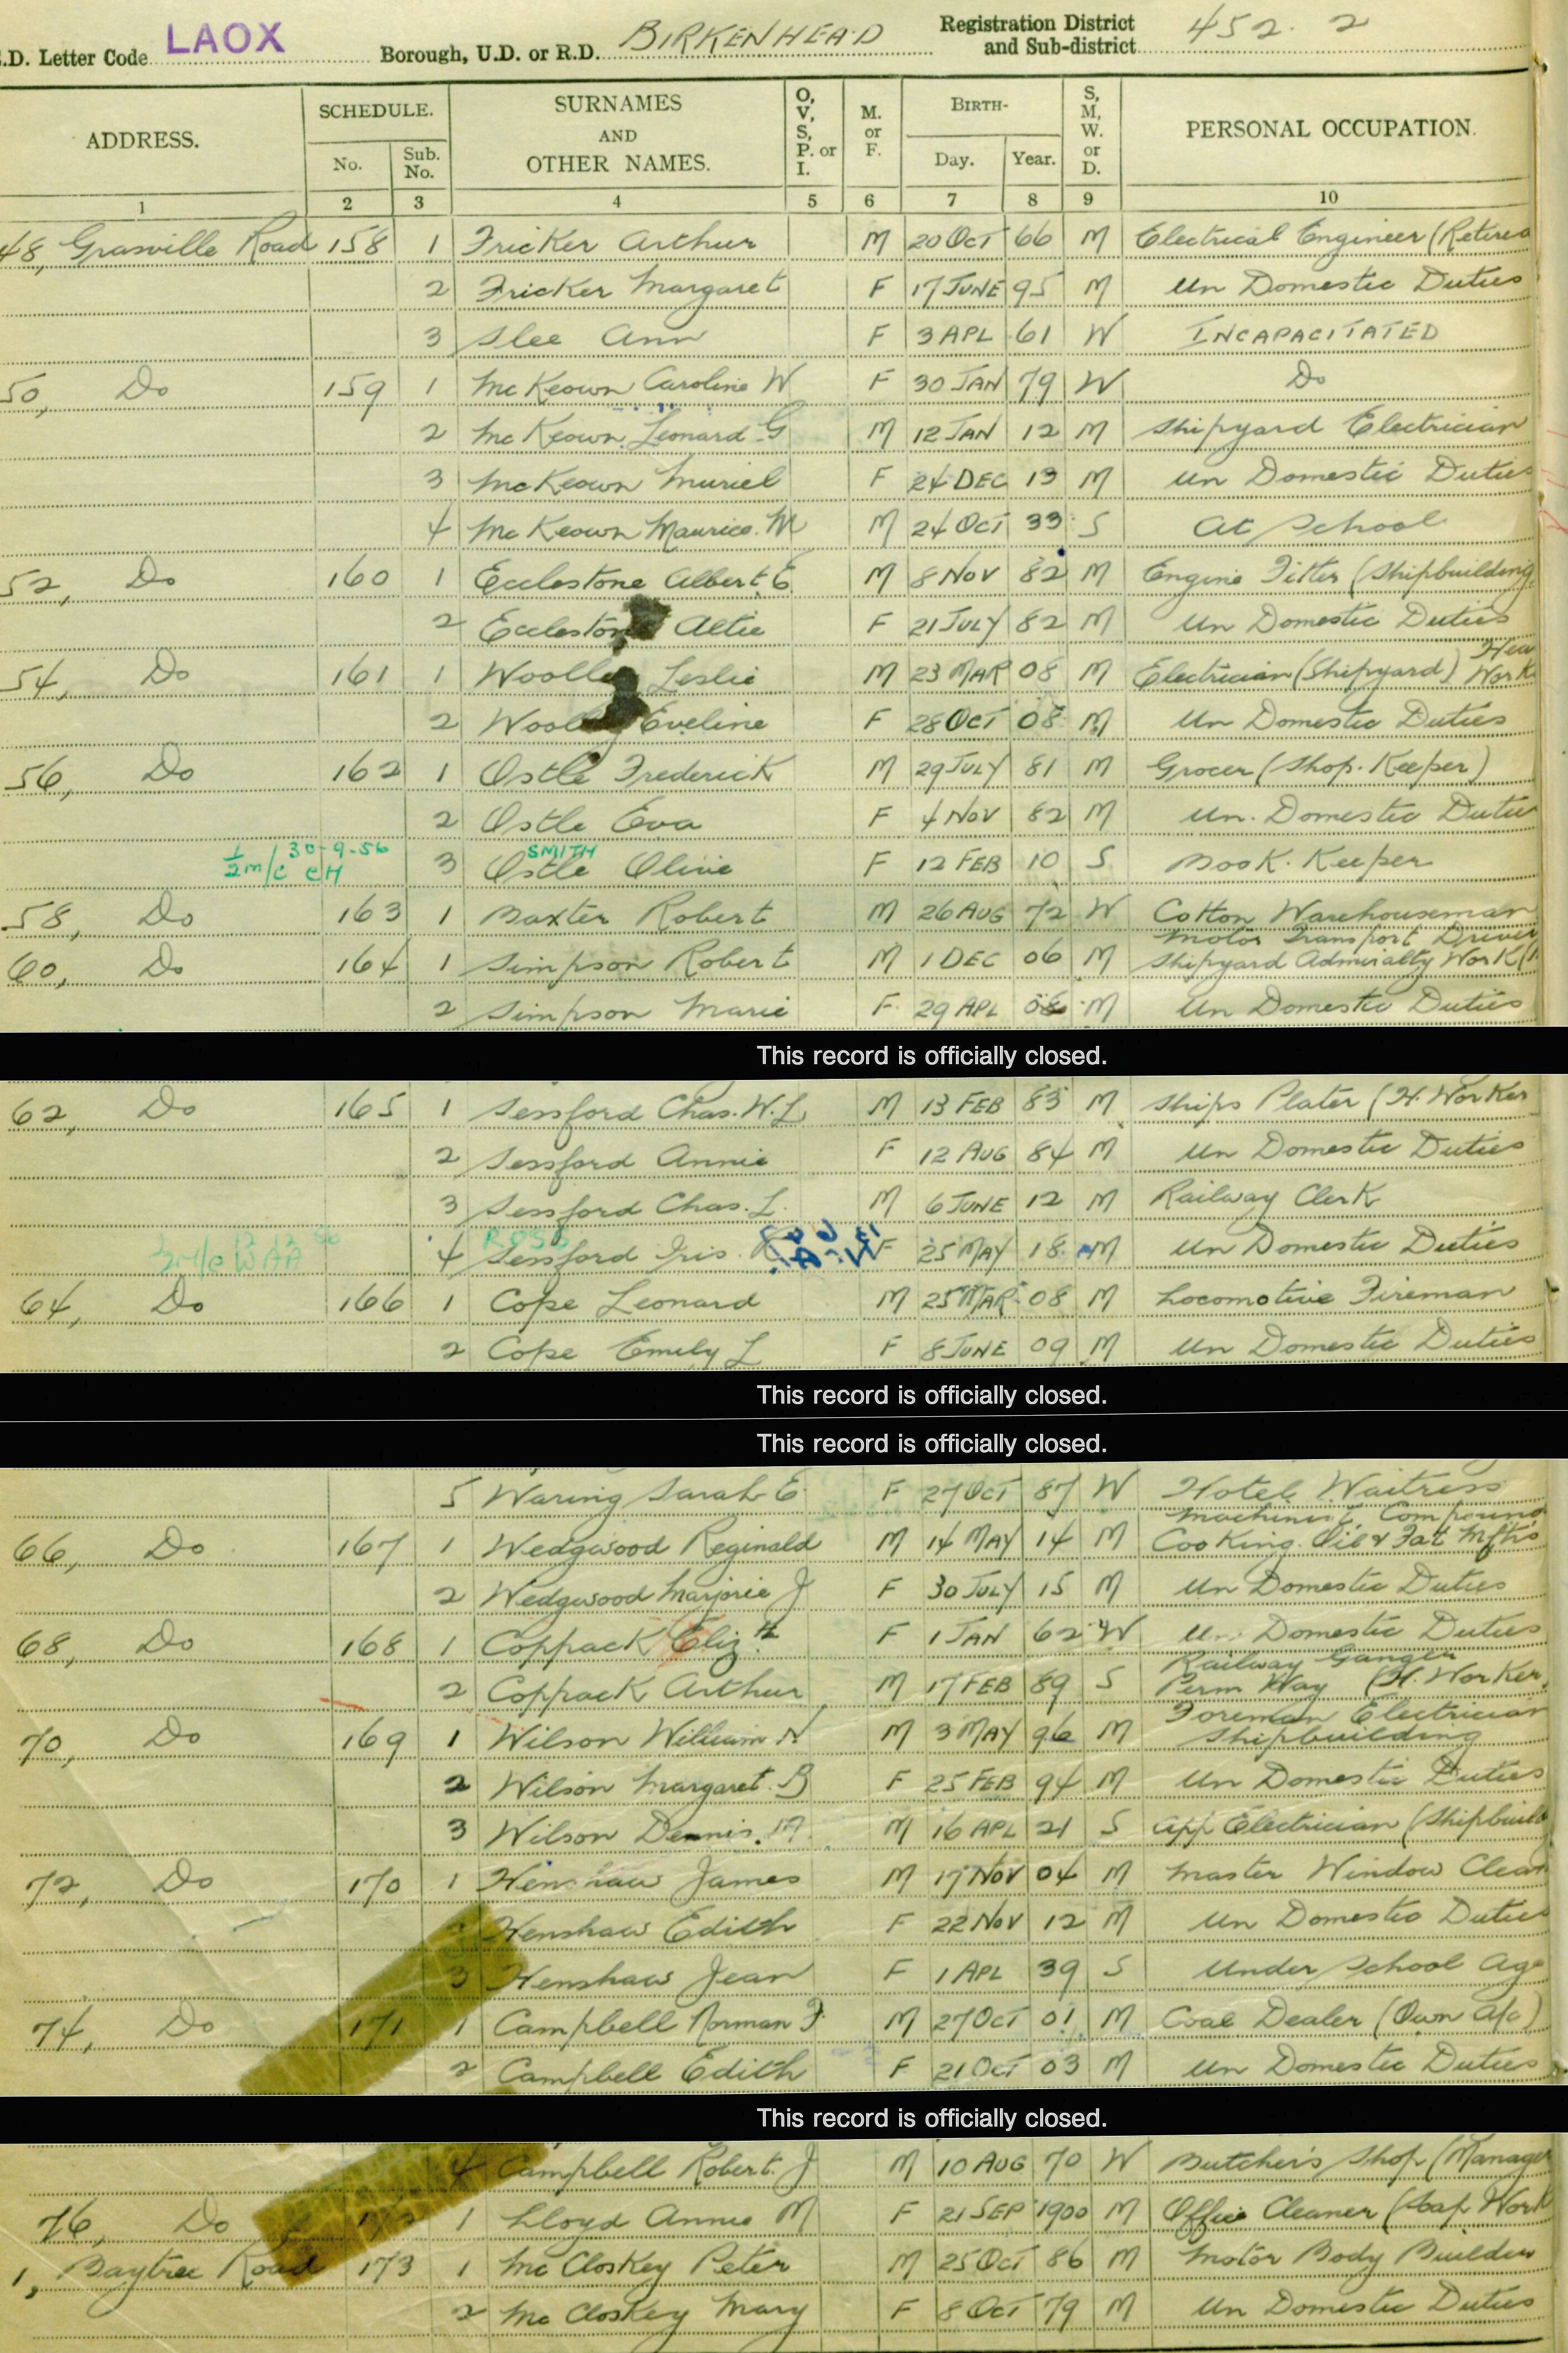 .D. Letter Code LAOX Borough, U.D. or R.D. BIRKENHEAD Registration District and Sub-district 452. 2
ADDRESS. SCHEDULE. No. Sub. No. SURNAMES AND OTHER NAMES. O, V, S, P. or I. M. or F. BIRTH- Day. Year. S, M, W. or D. PERSONAL OCCUPATION.
1 2 3 4 5 6 7 8 9 10
48, Road 158 1 Fricker Arthur M 20 OCT 66 M Electrical Engineer (Retired
2 Fricker Margaret F 17 JUNE 95 M Un Domestic Duties
3 Slee Ann F 3 APL 61 W INCAPACITATED
50, Do 159 1 McKeown Caroline W F 30 JAN 79 W Do
2 McKeown Leonard G M 12 JAN 12 M Shipyard Electrician
3 McKeown Muriel F 24 DEC 13 M Un Domestic Duties
4 McKeown Maurice. M M 24 OCT 33 S At School
52, Do 160 1 Ecclestone Albert E M 8 NOV 82 M Engine Fitter (Shipbuilding
2 Eccleston Altie F 21 JULY 82 M Un Domestic Duties
54, Do 161 1 Woolle Leslie M 23 MAR 08 M Electrician (Shipyard) Heav Work
2 Wooll Eveline F 28 OCT 08 M Un Domestic Duties
56, Do 162 1 Ostle Frederick M 29 JULY 81 M Grocer (Shop. Keeper)
2 Ostle Eva F 4 NOV 82 M Un. Domestic Duties
30-9-56 SMITH
3 Ostle Olive F 12 FEB 10 S Book. Keeper
58, Do 163 1 Baxter Robert M 26 AUG 72 W Cotton Warehouseman
Motor Transport Driver
60, Do 164 1 Simpson Robert M 1 DEC 06 M Shipyard Admiralty Work (
2 Simpson Marie F 29 APL 08 M Un Domestic Duties
This record is officially closed.
62, Do 165 1 Sessford Chas. W. L M 13 FEB 83 M Ships Plater (H. Worker
2 Sessford Annie F 12 AUG 84 M Un Domestic Duties
3 Sessford Chas. L. M 6 JUNE 12 M Railway Clerk
ROSS
4 Sessford Iris. F 25 MAY 18 M Un Domestic Duties
64, Do 166 1 Cope Leonard M 25 MAR 08 M Locomotive Fireman
2 Cope Emily L F 8 JUNE 09 M Un Domestic Duties
This record is officially closed.
This record is officially closed.
5 Waring Sarah E F 27 OCT 87 W Hotel Waitress
Machinist, Compound
66, Do 167 1 Wedgwood Reginald M 14 MAY 14 M Cooking Oil & Fat Mftrs
2 Wedgwood Marjorie J F 30 JULY 15 M Un Domestic Duties
68, Do 168 1 Coppack Elizth F 1 JAN 62 W Un Domestic Duties
Railway Ganger
2 Coppack Arthur M 17 FEB 89 S Perm Way (H. Worker,
Foreman Electrician
70, Do 169 1 Wilson William N M 3 MAY 96 M Shipbuilding
2 Wilson Margaret. B F 25 FEB 94 M Un Domestic Duties
3 Wilson Dennis. M 16 APL 21 S App Electrician (Shipbuild
72, Do 170 1 Henshaw James M 17 NOV 04 M Master Window Clean
Henshaw Edith F 22 NOV 12 M Un Domestic Duties
3 Henshaw Jean F 1 APL 39 S Under School Age
74, Do 171 1 Campbell Norman F. M 27 OCT 01 M Coal Dealer (Own a/c)
2 Campbell Edith F 21 OCT 03 M Un Domestic Duties
This record is officially closed.
4 Campbell Robert. J M 10 AUG 70 W Butcher's Shop (Manager
76, Do 172 1 Lloyd Annie M F 21 SEP 1900 M Office Cleaner (Soap Work
1, Baytree Road 173 1 McCloskey Peter M 25 OCT 86 M Motor Body Builder
2 McCloskey Mary F 8 OCT 79 M Un Domestic Duties